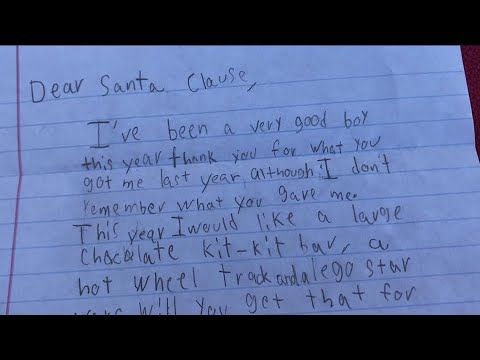 Dear Santa Clause,
I've been a very good boy
this year thank you for what you
got me last year although I don't
remember what you gave me.
This year I would like a large
Chocalate kit-kit bar, a
hot wheel track and a lego star
wars will you get that for